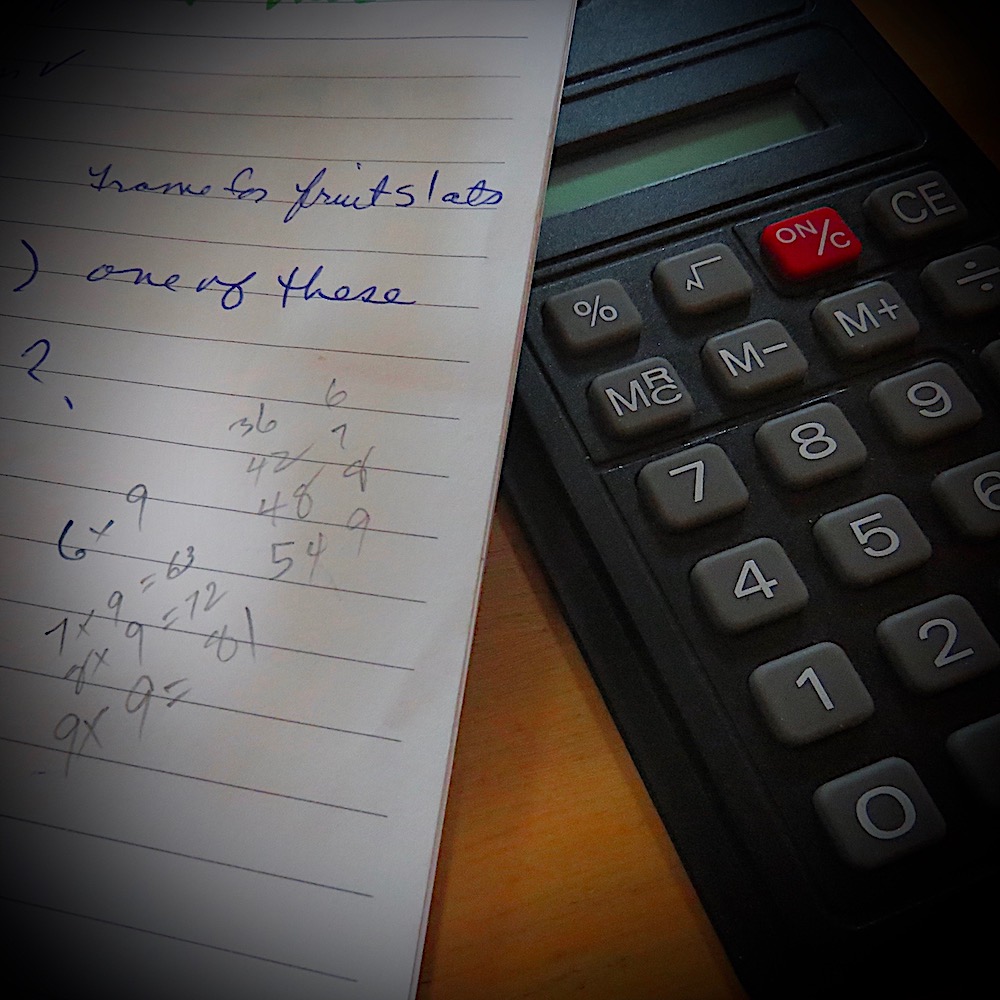 frame for fruit slats
) one of these
?
6
36 7
42 8
48 9
54
6 x 9
7 x 9 = 63
8 x 9 = 72
9 x 9 = 81
ON/C CE
% √ ÷
MRC M- M+
7 8 9
4 5 6
1 2
0